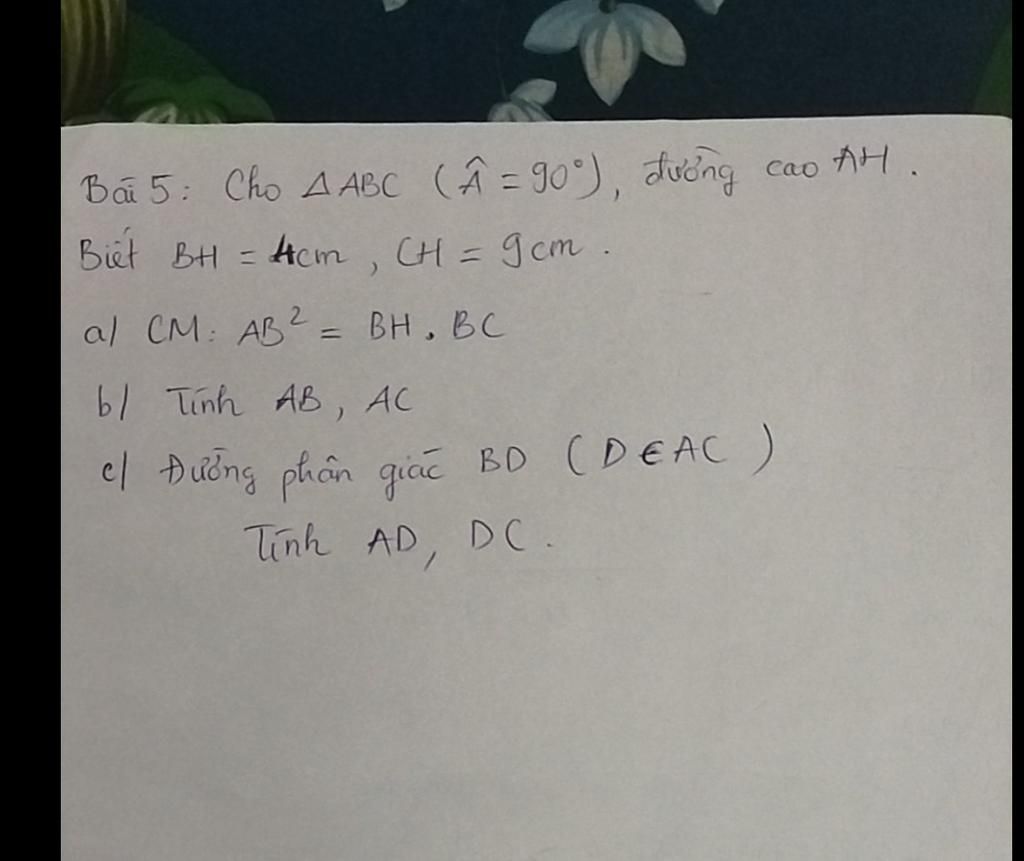 Bài 5: Cho △ABC (Â = 90°), đường cao AH.
Biết BH = 4cm, CH = 9cm.
a/ CM: AB² = BH . BC
b/ Tính AB, AC
c/ Đường phân giác BD (D ∈ AC)
Tính AD, DC.